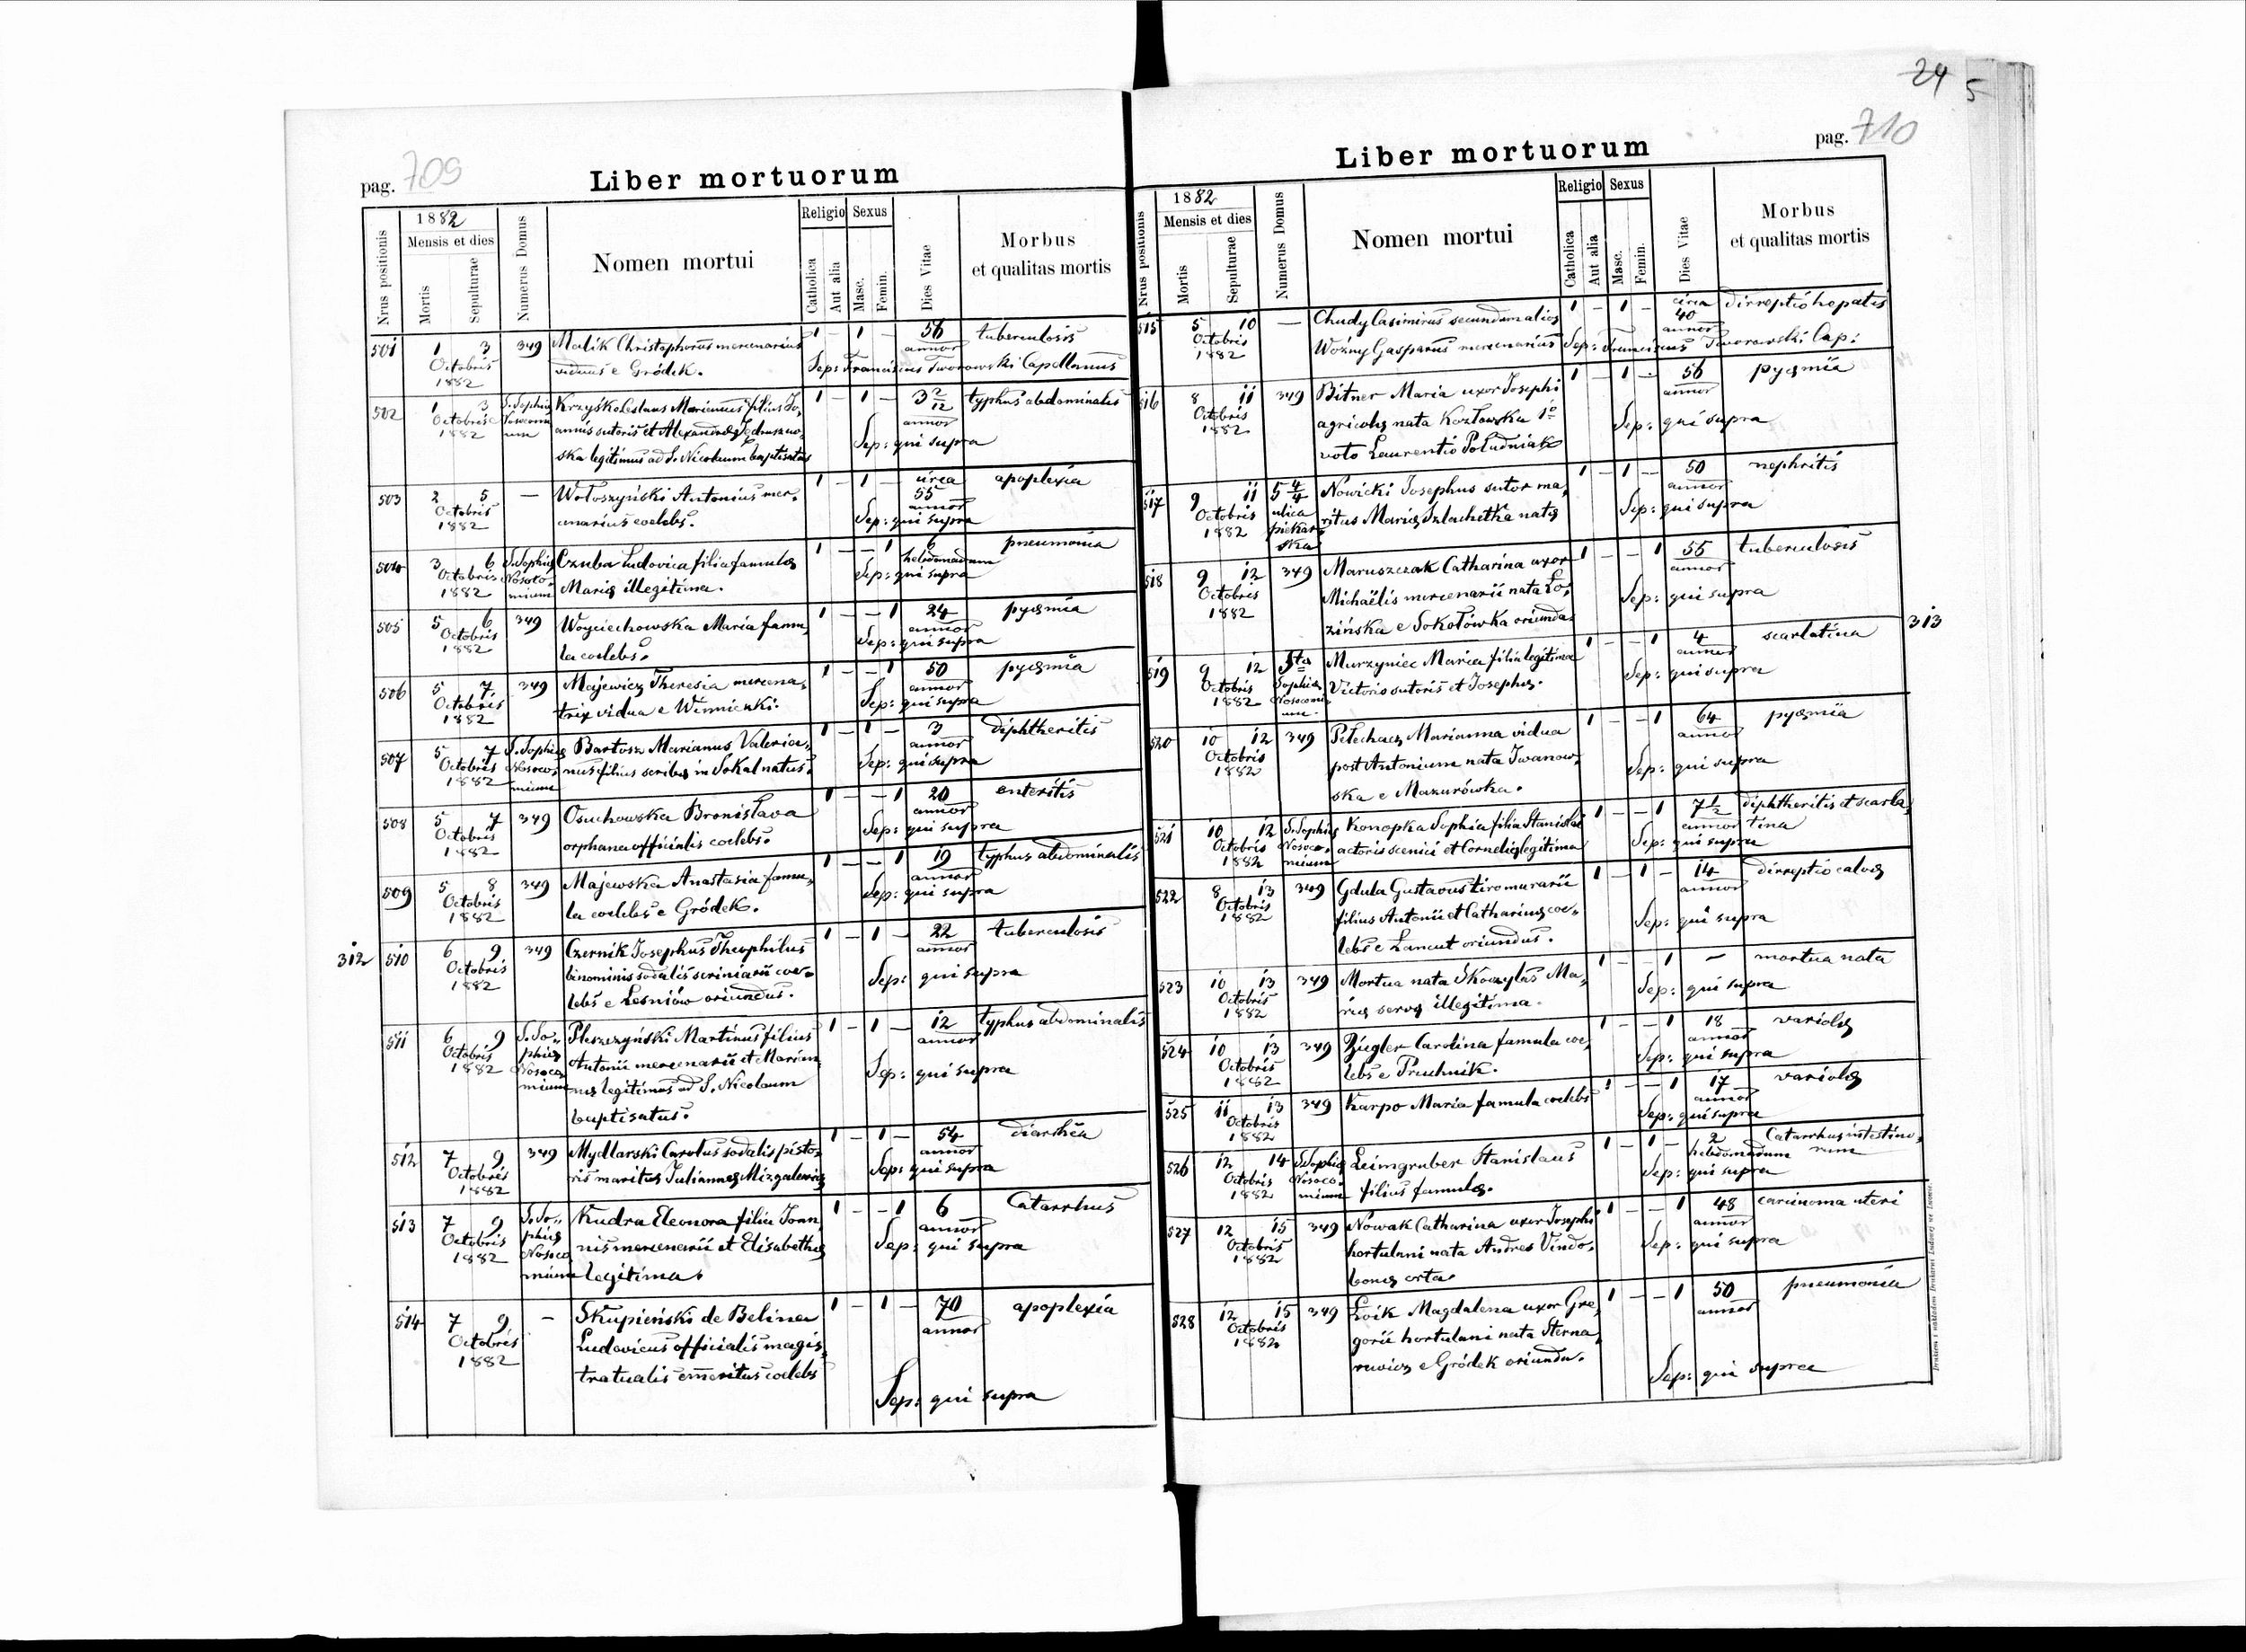 24 5
pag. 709
Liber mortuorum
Nrus positionis
1882
Mensis et dies
Mortis
Sepulturae
Numerus Domus
Nomen mortui
Religio
Catholica
Aut alia
Sexus
Masc.
Femin.
Dies Vitae
Morbus
et qualitas mortis
501 1 3 349 Malik Christophorus mercenarius 1 - 1 - 56 tuberculosis
Octobris viduus e Gródek. annor
1882 Sep: Franciscus Tworowski Cap
502 1 3 S. Sophie Krzyśko Ceslaus Marianus filius Jo, 1 - 1 - 3 2/12 typhus abdominalis
Octobris annis sutoris et Alexandrę Jędruszno, annor
1882 ska legitimus ad S. Nicolaum baptisatus Sep: qui supra
503 2 5 - Wołoszyński Antonius mer, 1 - 1 - circa apoplexia
Octobris cenarius coelebs. 55 annor
1882 Sep: qui supra
504 3 6 S. Sophię Czuba Ludovica filia famulę 1 - - 1 6 pneumonia
Octobris Nosoco- Marię illegitima. hebdomadum
1882 mium Sep: qui supra
505 5 6 349 Woyciechowska Maria famu, 1 - - 1 24 pyęmia
Octobris la coelebs. annor
1882 Sep: qui supra
506 5 7 349 Majewicz Theresia mercena, 1 - - 1 50 pyęmia
Octobris trix vidua e Winniczki. annor
1882 Sep: qui supra
507 5 7 S. Sophię Bartosz Marianus Valeria, 1 - 1 - 3 diphtheritis
Octobris Nosoco, nus filius scribę in Sokal natus. annor
1882 mium Sep: qui supra
508 5 7 349 Osuchowska Bronislava 1 - - 1 20 enteritis
Octobris orphana officialis coelebs. annor
1882 Sep: qui supra
509 5 8 349 Majewska Anastasia famu, 1 - - 1 19 typhus abdominalis
Octobris la coelebs e Gródek. annor
1882 Sep: qui supra
312 510 6 9 349 Czernik Josephus Theophilus 1 - 1 - 22 tuberculosis
Octobris binominis sodalis scriniarii coe- annor
1882 lebs e Leśniów oriundus. Sep: qui supra
511 6 9 S. So- Pleszczyński Martinus filius 1 - 1 - 12 typhus abdominalis
Octobris phię Antonii mercenarii et Marian, annor
1882 Nosoco, nę legitimus ad S. Nicolaum Sep: qui supra
mium baptisatus.
512 7 9 349 Mydlarski Carolus sodalis pisto, 1 - 1 - 54 diarrhëa
Octobris ris maritus Juliannę Mizgalewicz annor
1882 Sep: qui supra
513 7 9 S. So- Kudra Eleonora filia Joan, 1 - - 1 6 Catarrhus
Octobris phię nis mercenarii et Elisabethę annor
1882 Nosoco, legitima. Sep: qui supra
mium
514 7 9 - Skupieński de Belina 1 - 1 - 70 apoplexia
Octobris Ludovicus officialis magis, annor
1882 tratualis emeritus coelebs
Sep: qui supra
pag. 710
Liber mortuorum
Nrus positionis
1882
Mensis et dies
Mortis
Sepulturae
Numerus Domus
Nomen mortui
Religio
Catholica
Aut alia
Sexus
Masc.
Femin.
Dies Vitae
Morbus
et qualitas mortis
515 5 10 - Chudy Casimirus secundum alios 1 - 1 - circa dirreptio hepatis
Octobris Woźny Gasparus mercenarius 40 annor
1882 Sep: Franciscus Tworowski Cap:
516 8 11 349 Bitner Maria uxor Josephi 1 - 1 - 56 pyęmia
Octobris agricolę nata Kozłowska 1o annor
1882 voto Laurentio Południak Sep: qui supra
517 9 11 5 4/4 Nowicki Josephus sutor ma, 1 - 1 - 50 nephritis
Octobris ulica ritus Marię Szlachetka natę annor
1882 piekar- Sep: qui supra
ska
518 9 12 349 Maruszczak Catharina uxor 1 - - 1 55 tuberculosis
Octobris Michaëlis mercenarii nata Ło, annor
1882 zińska e Sokołówka oriunda. Sep: qui supra
519 9 12 Sta Murzyniec Maria filia legitima 1 - - 1 4 scarlatina 313
Octobris Sophię Victoris sutoris et Josephę. annor
1882 Nosocomi- Sep: qui supra
um.
520 10 12 349 Pełechacz Marianna vidua 1 - - 1 64 pyęmia
Octobris post Antonium nata Iwanow, annor
1882 ska e Mazurówka. Sep: qui supra
521 10 12 S. Sophię Konopka Sophia filia Stanislai 1 - - 1 7 1/2 diphtheritis et scarla,
Octobris Nosoco- actoris scenici et Cornelię legitima annor tina
1882 mium Sep: qui supra
522 8 13 349 Gdula Gustavus tiro murarii 1 - 1 - 14 dirreptio calvę
Octobris filius Antonii et Catharinę coe, annor
1882 lebs e Łancut oriundus. Sep: qui supra
523 10 13 349 Mortua nata Skoczylas Ma, 1 - - 1 - mortua nata
Octobris rię servę illegitima. Sep: qui supra
1882
524 10 13 349 Ziegler Carolina famula coe, 1 - - 1 18 variolę
Octobris lebs e Pruchnik. annor
1882 Sep: qui supra
525 11 13 349 Karpo Maria famula coelebs 1 - - 1 17 variolę
Octobris annor
1882 Sep: qui supra
526 12 14 S. Sophię Leimgruber Stanislaus 1 - 1 - 2 Catarrhus intestino,
Octobris Nosoco- filius famulę. hebdomadum rum
1882 mium Sep: qui supra
527 12 15 349 Nowak Catharina uxor Josephi 1 - - 1 48 carcinoma uteri
Octobris hortulani nata Andres Vindo, annor
1882 bonę orta. Sep: qui supra
528 12 15 349 Łoik Magdalena uxor Gre, 1 - - 1 50 pneumonia
Octobris gorii hortulani nata Sterna, annor
1882 rowicz e Gródek oriunda.
Sep: qui supra